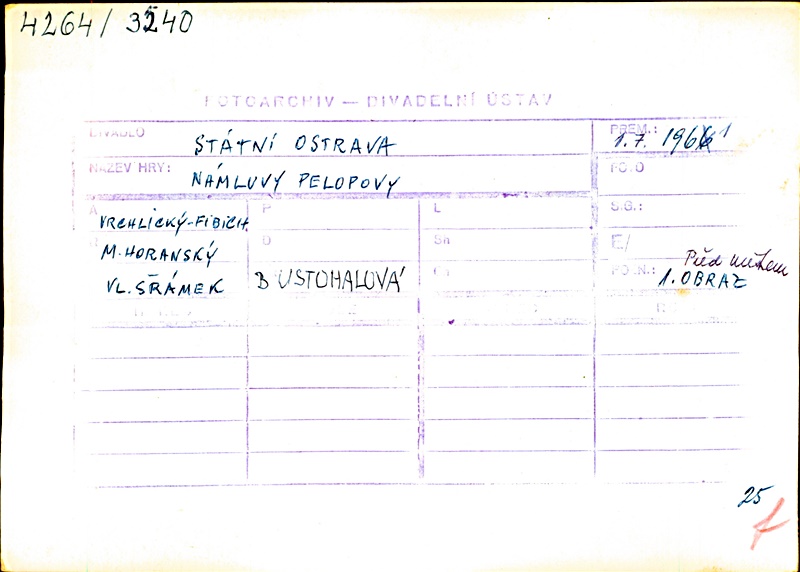 4264/ 3240
FOTOARCHIV — DIVADELNÍ ÚSTAV
DIVADLO STÁTNÍ OSTRAVA PREM.: 1.7. 1961
NÁZEV HRY: NÁMLUVY PELOPOVY FO.O
A VRCHLICKÝ-FIBICH P L S.G.:
M. HORANSKÝ O Sn E/
VL. ŠRÁMEK B USTOHALOVÁ FO.N.: 1. OBRAZ
Před
25